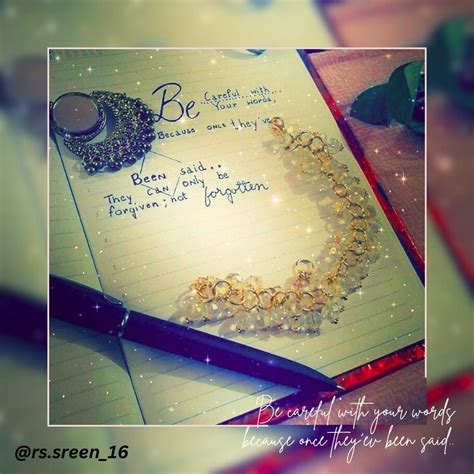 Be Careful..with..
Your words,
Because once they've
Been said..
They can only be
forgiven; not forgotten
Be careful with your words
because once they'ev been said..
@rs.sreen_16